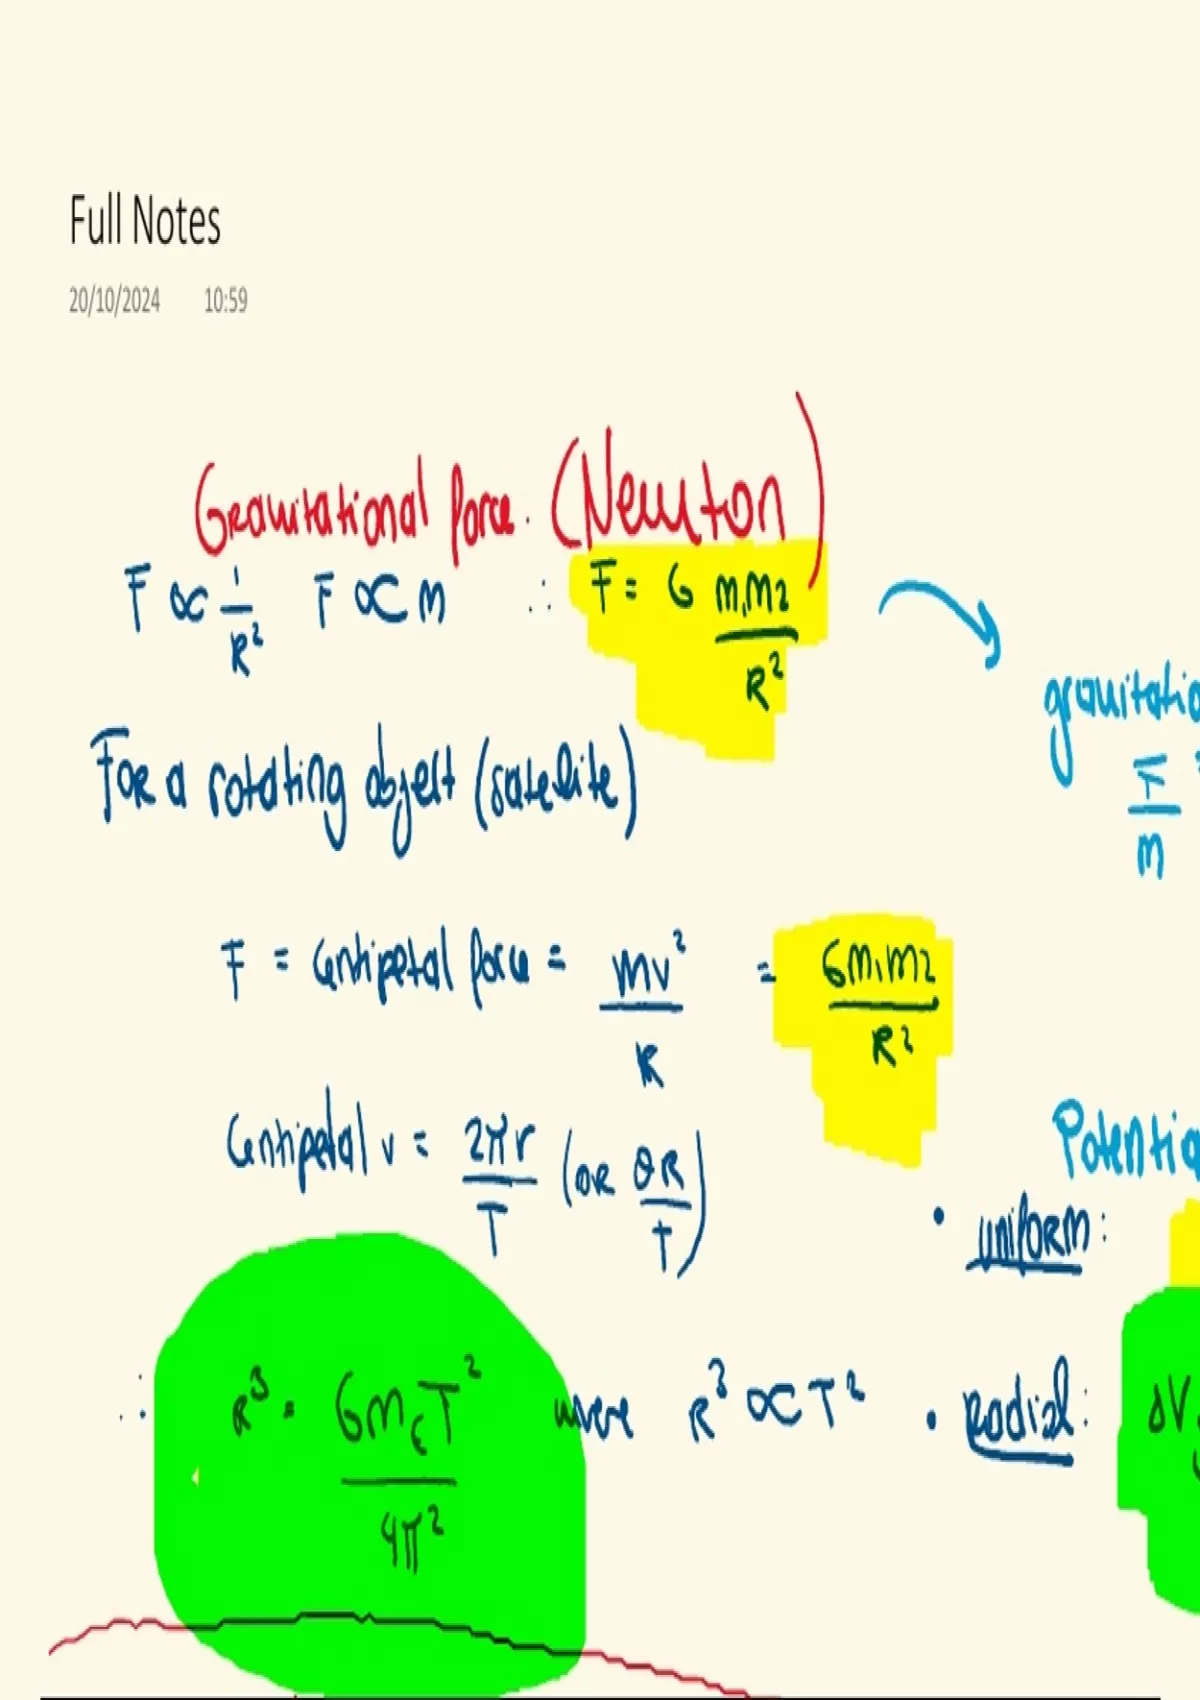 Full Notes
20/10/2024 10:59
Gravitational force. (Newton)
F ∝ 1/R² F ∝ m ∴ F = G m₁m₂/R²
For a rotating object (satellite)
F/m
F = Centipetal force = mv²/R = Gm₁m₂/R²
Centipetal v = 2πr/T (or θR/T)
• uniform:
∴ R³ = GMₑT²/4π² where R³ ∝ T² • radial: